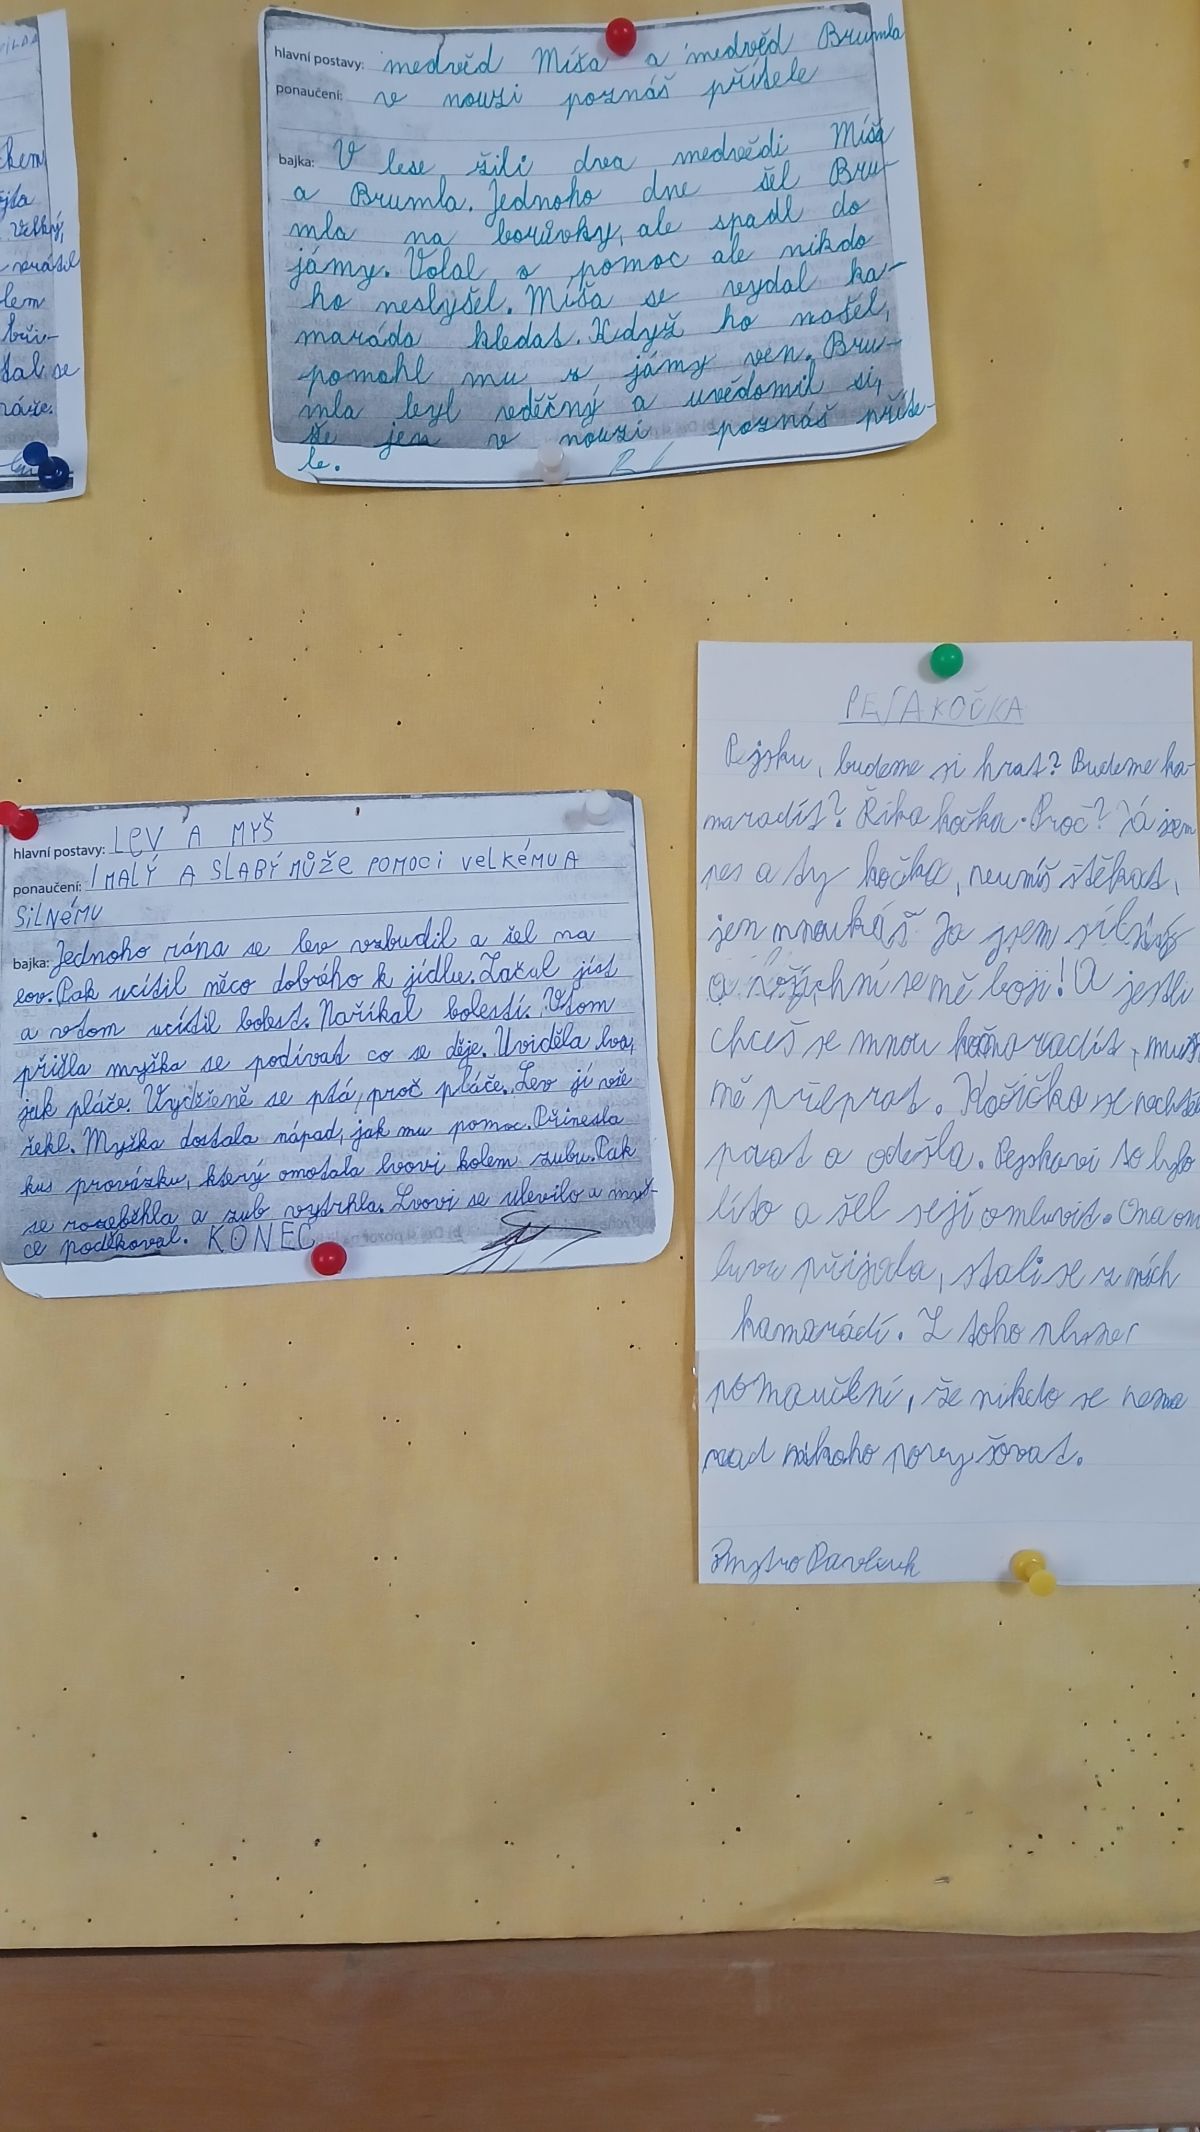 chem
velký,
vrátil
lem
tal se
hlavní postavy: medvěd Míša a medvěd Brumla
ponaučení: v nouzi poznáš přítele
bajka: V lese žili dva medvědi Míša
a Brumla. Jednoho dne šel Bru-
mla na borůvky, ale spadl do
jámy. Volal o pomoc ale nikdo
ho neslyšel. Míša se vydal ka-
maráda hledat. Když ho našel,
pomohl mu z jámy ven. Bru-
mla byl vděčný a uvědomil si,
že jen v nouzi poznáš příte-
le.
hlavní postavy: LEV A MYŠ
ponaučení: I MALÝ A SLABÝ MŮŽE POMOCI VELKÉMU A
SILNÉMU
bajka: Jednoho rána se lev vzbudil a šel na
lov. Pak ucítil něco dobrého k jídlu. Začal jíst
a vtom ucítil bolest. Naříkal bolestí. Vtom
přišla myška se podívat co se děje. Uviděla lva,
jak pláče. Vyděšeně se ptá, proč pláče. Lev jí vše
řekl. Myška dostala nápad, jak mu pomoc. Přinesla
kus provázku, který omotala lvovi kolem zubu. Pak
se rozeběhla a zub vytrhla. Lvovi se ulevilo a myš-
ce poděkoval. KONEC
PES A KOČKA
Pejsku, budeme si hrat? Budeme ka-
maradit? Říka kočka. Proč? Já jsem
pes a ty kočka, neumíš štěkat,
jen mňoukáš. Ja jsem silný
a všichni se mě boji! A jestli
chceš se mnou kamaradit, musíš
mě přeprat. Kočička se nechtěla
prat a odešla. Pejskovi to bylo
líto a šel se jí omluvit. Ona om
luvu přijala, stali se z nich
kamarádí. Z toho plyne
ponaučení, že nikdo se nema
nad nikoho povyšovat.
Dmytro Pavliuk